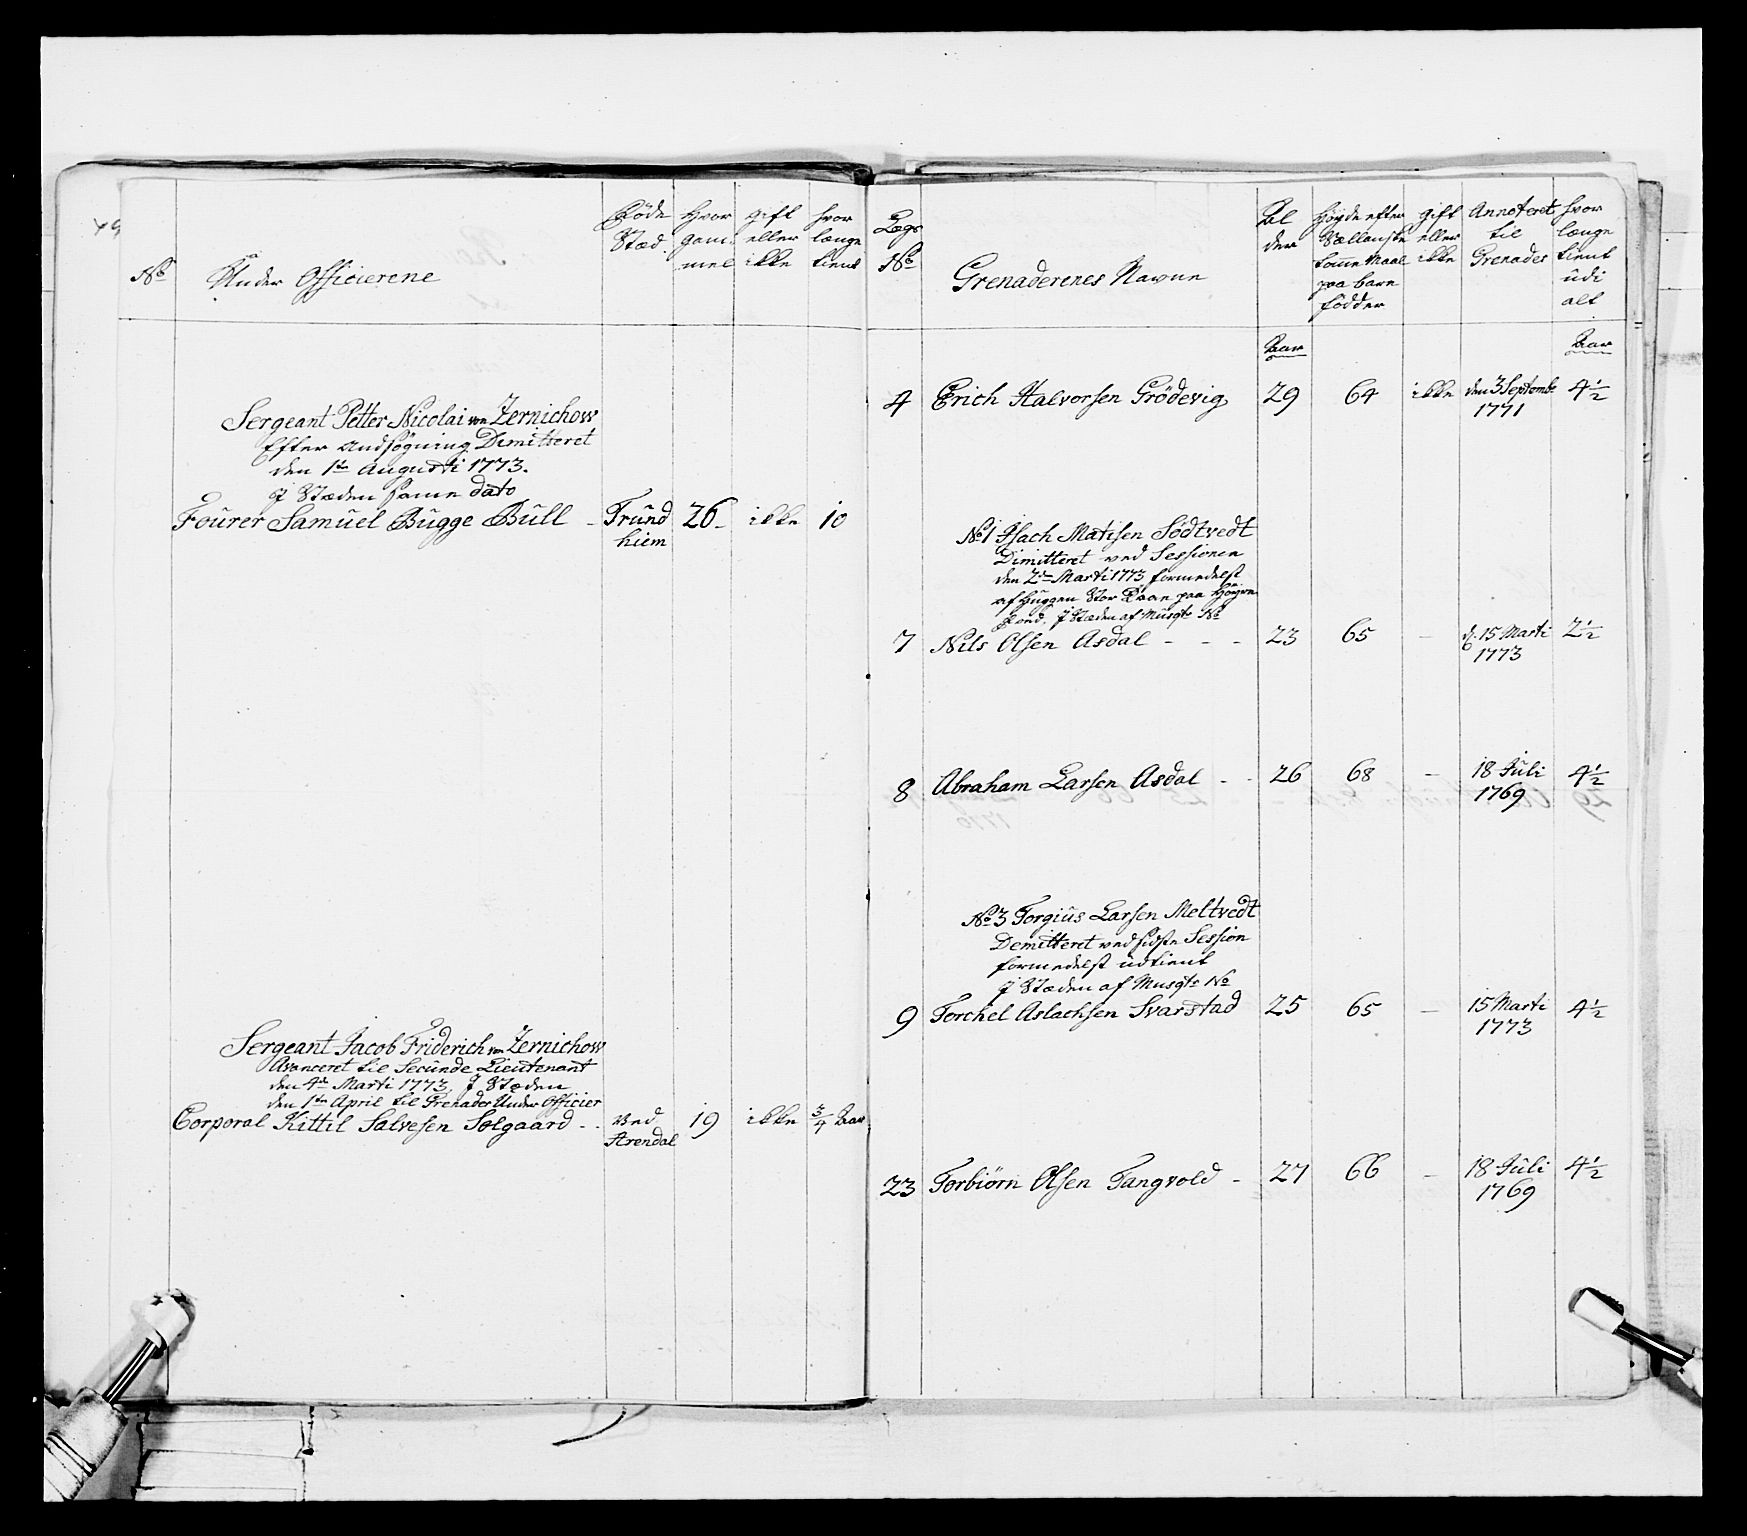 No
Under Officierene
Föde
Stæd
hvor
gam¬
mel
gift
eller
ikke
hvor
længe
tient
Sergeant Petter Nicolai von Zernichow
Efter Andsøgning Dimitteret
den 1te Augusti 1773.
I Stæden samme dato
Fourer Samuel Bugge Bull - Trund 26 - ikke 10
hiem
Sergeant Jacob Friderich von Zernichow
Avanceret til Secunde Lieutenant
den 4de Marti 1773. I Stæden
den 1te April til Grenader Under Officier
Corporal Kittil Salvesen Solgaard - - ved 19 ikke 3/4 Aar
Arendal
Lægs
No
Grenaderenes Navne
Al
der
Höyde efter
Sællandske
tomme Maal
paa bare
födder
gift
eller
ikke
Annoteret
til
Grenader
hvor
længe
tient
udi
alt
Aar
Aar
4 Erich Halvorsen Grödevig 29 64 ikke den 3 Septembr 4 1/2
1771
No 1 Isach Matisen Södtvedt
Dimitteret ved Sessionen
den 2den Marti 1773 formedelst
af huggen Stor Taae paa Höyre
food, I Stæden af Musqtr No
7 Nils Olsen Asdal - - - 23 65 - d. 15 Marti 2 1/2
1773
8 Abraham Larsen Asdal - - 26 68 - 18 Juli 4 1/2
1769
No 3 Torgius Larsen Meltvedt
Demitteret ved sidste Session
formedelst udtient
I Stæden af Musqtr No
9 Torchel Aslachsen Svarstad 25 65 - 15 Marti 4 1/2
1773
23 Torbiörn Olsen Tangvold - 27 66 - 18 Juli 4 1/2
1769